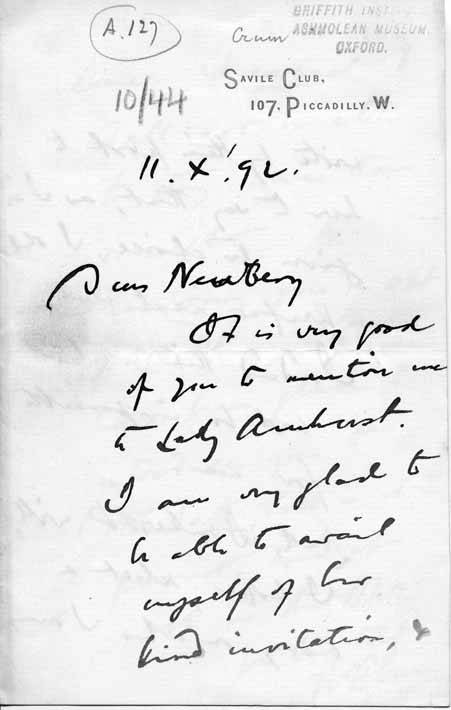 A.127
Crum
GRIFFITH INSTITUTE
ASHMOLEAN MUSEUM.
OXFORD.
10/44
SAVILE CLUB,
107. PICCADILLY. W.
11. X'. 92.
Dear Newberry
It is very good
of you to mention me
to Lady Amherst.
I am very glad to
be able to avail
myself of her
kind invitation, &